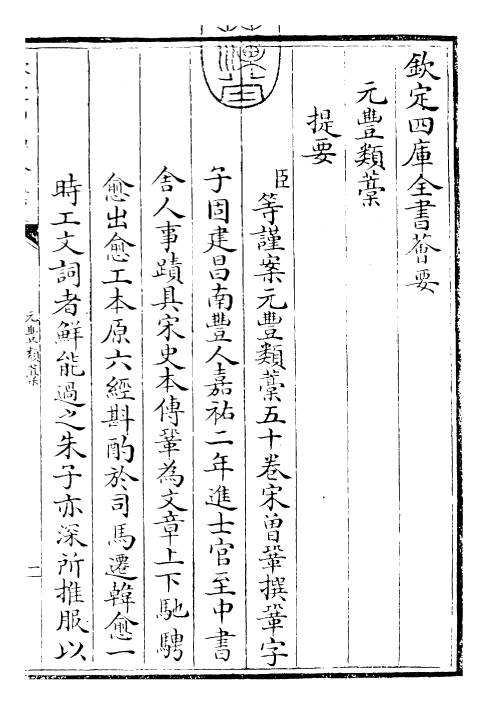 欽定四庫全書薈要
元豐類藳
提要
臣等謹案元豐類藳五十卷宋曽鞏撰鞏字
子固建昌南豐人嘉祐二年進士官至中書
舍人事蹟具宋史本傳鞏為文章上下馳騁
愈出愈工本原六經斟酌於司馬遷韓愈一
時工文詞者鮮能過之朱子亦深所推服以
元豐類藳
一